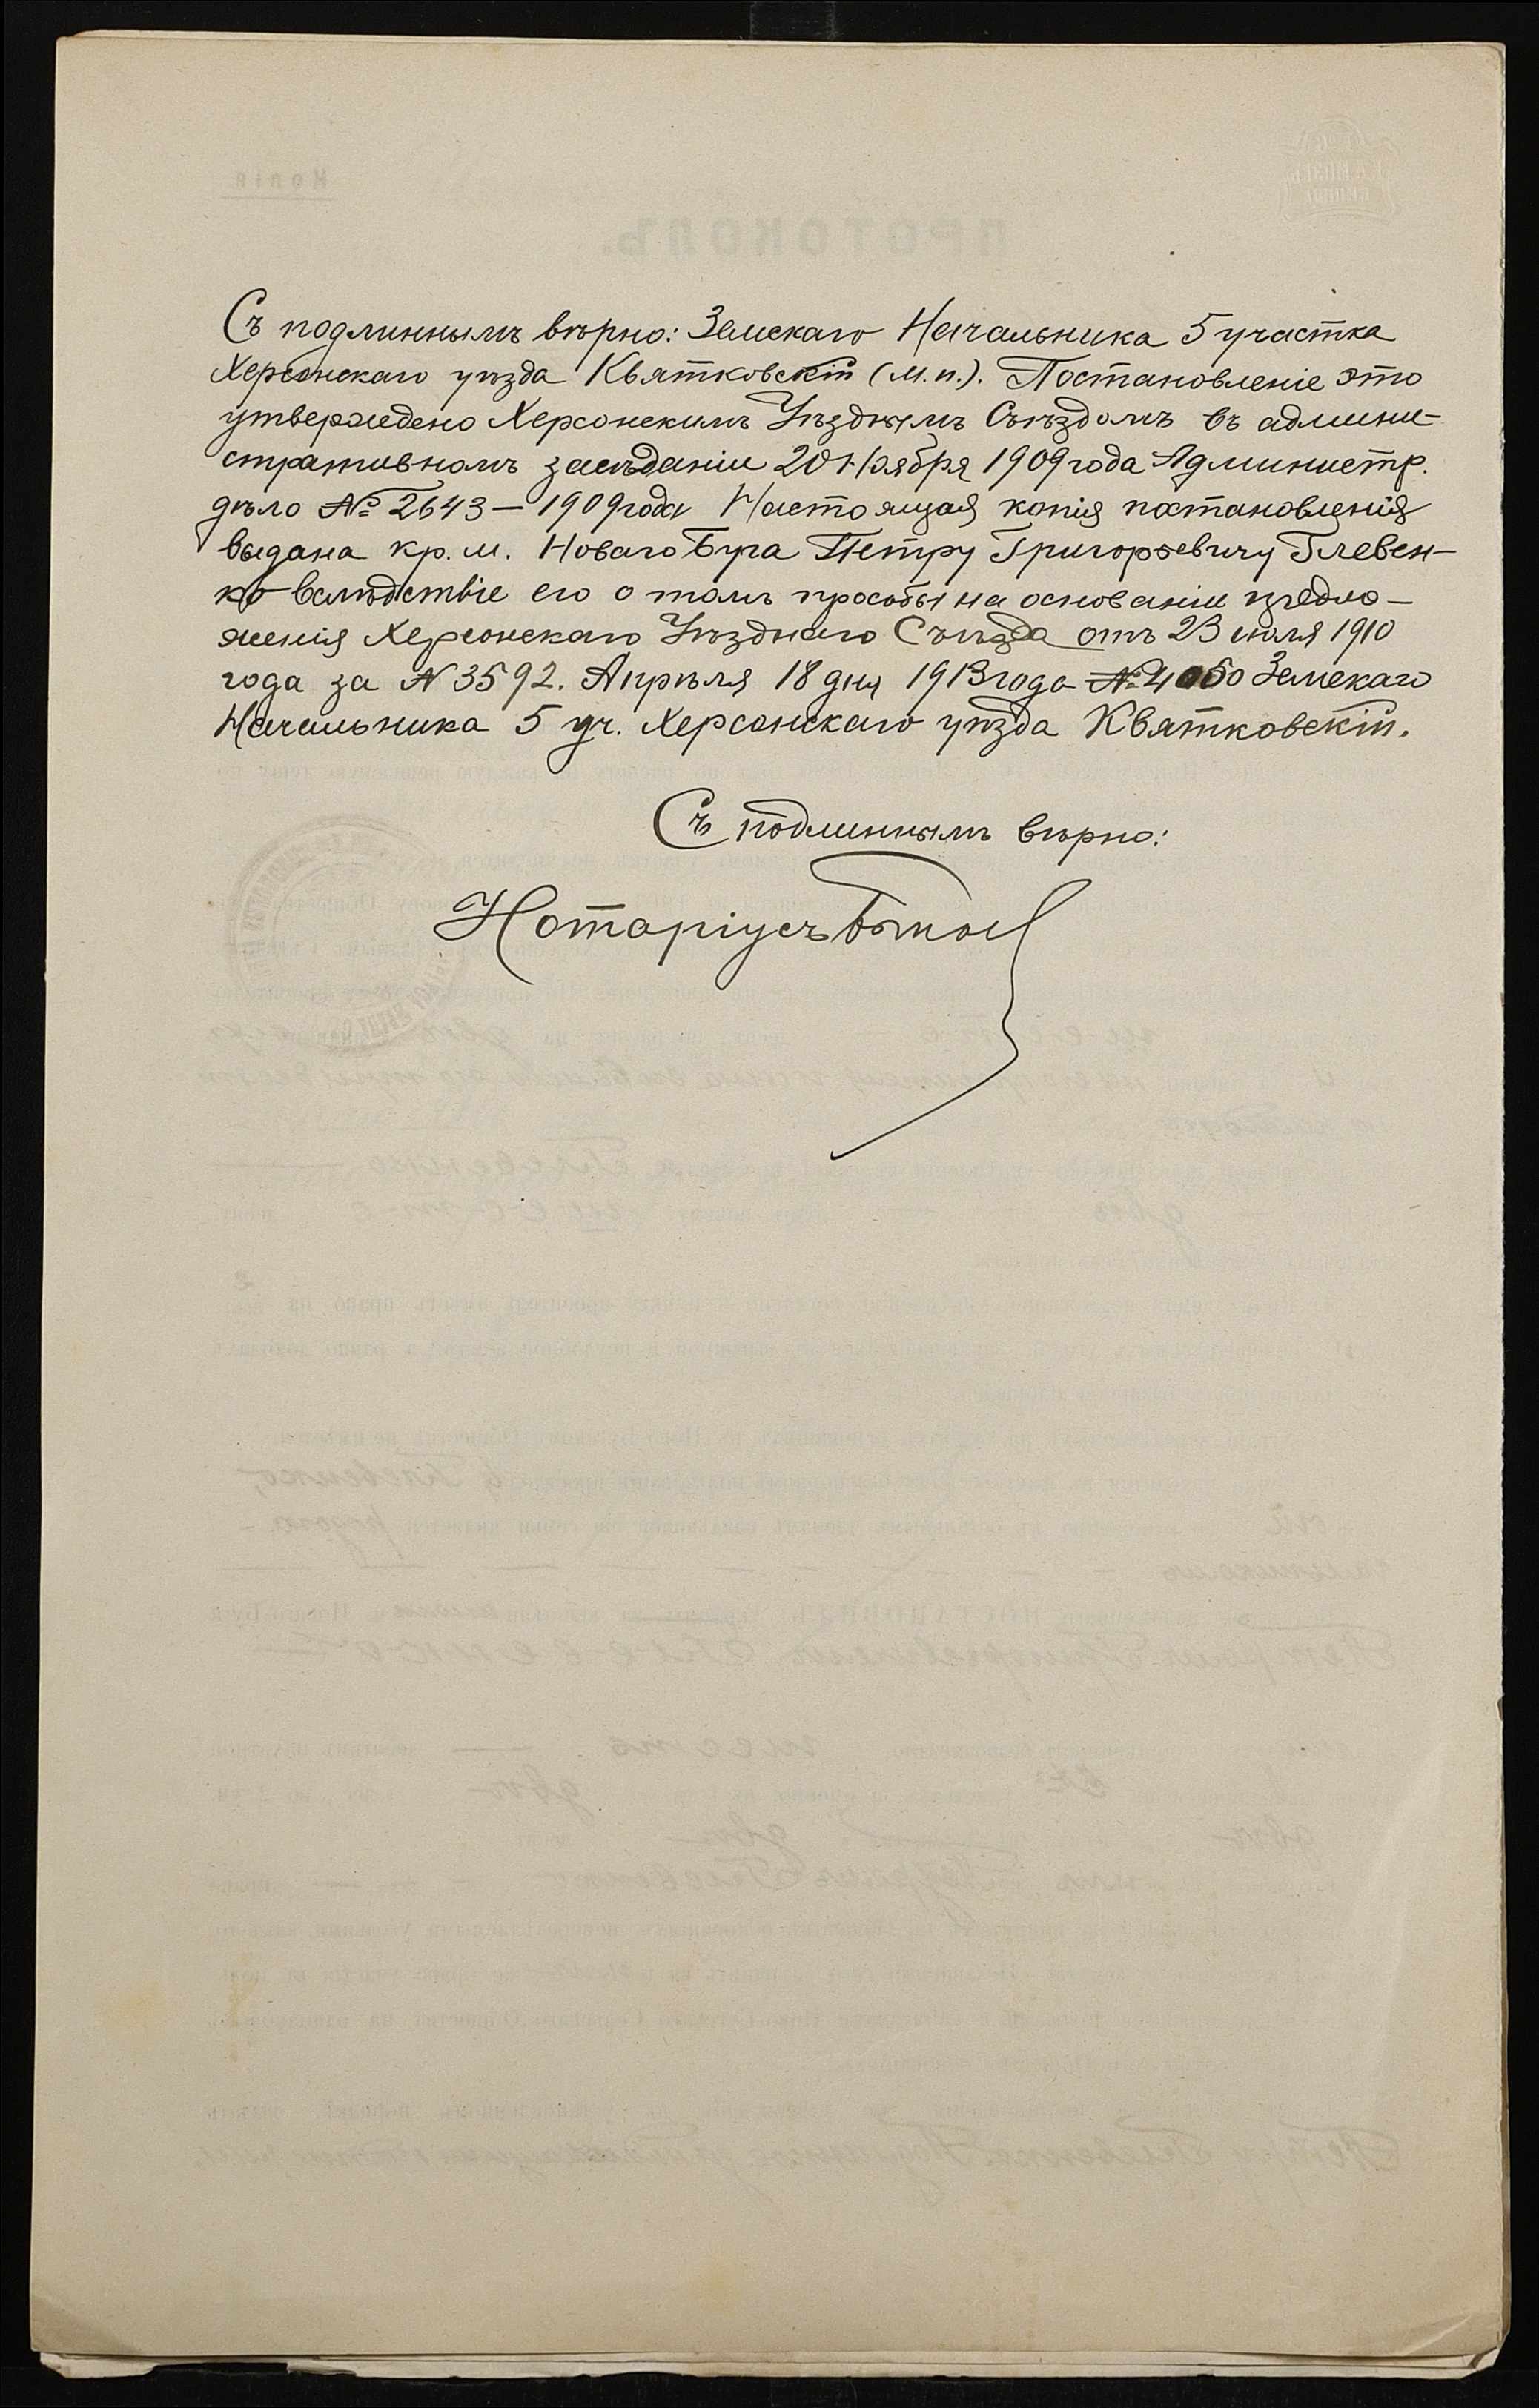 Съ подлиннымъ вѣрно: Земскаго Начальника 5 участка
Херсонскаго уѣзда Квятковскій (м.п.). Постановленіе это
утверждено Херсонскимъ Уѣзднымъ Съѣздомъ въ админи-
стративномъ засѣданіи 20 Ноября 1909 года Администр.
дѣло № 2643 – 1909 года Настоящая копія постановленія
выдана кр. м. Новаго Буга Петру Григорьевичу Глевен-
ко вслѣдствіе его о томъ просьбы на основаніи предло-
женія Херсонскаго Уѣзднаго Съѣзда отъ 23 июля 1910
года за N 3592. Апрѣля 18 дня 1913 года № 4050 Земскаго
Начальника 5 уч. Херсонскаго уѣзда Квятковскій.
Съ подлиннымъ вѣрно:
Нотаріусъ